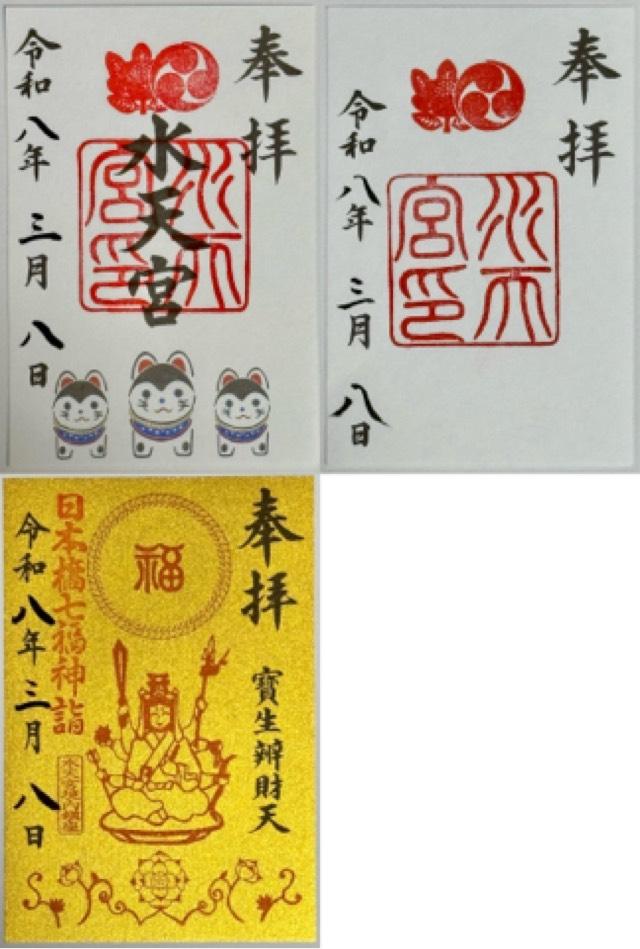 奉拝
水天宮
水天宮印
令和八年三月八日
奉拝
水天宮印
令和八年三月八日
奉拝
寶生辨財天
福
日本橋七福神詣
水天宮境内鎮座
令和八年三月八日